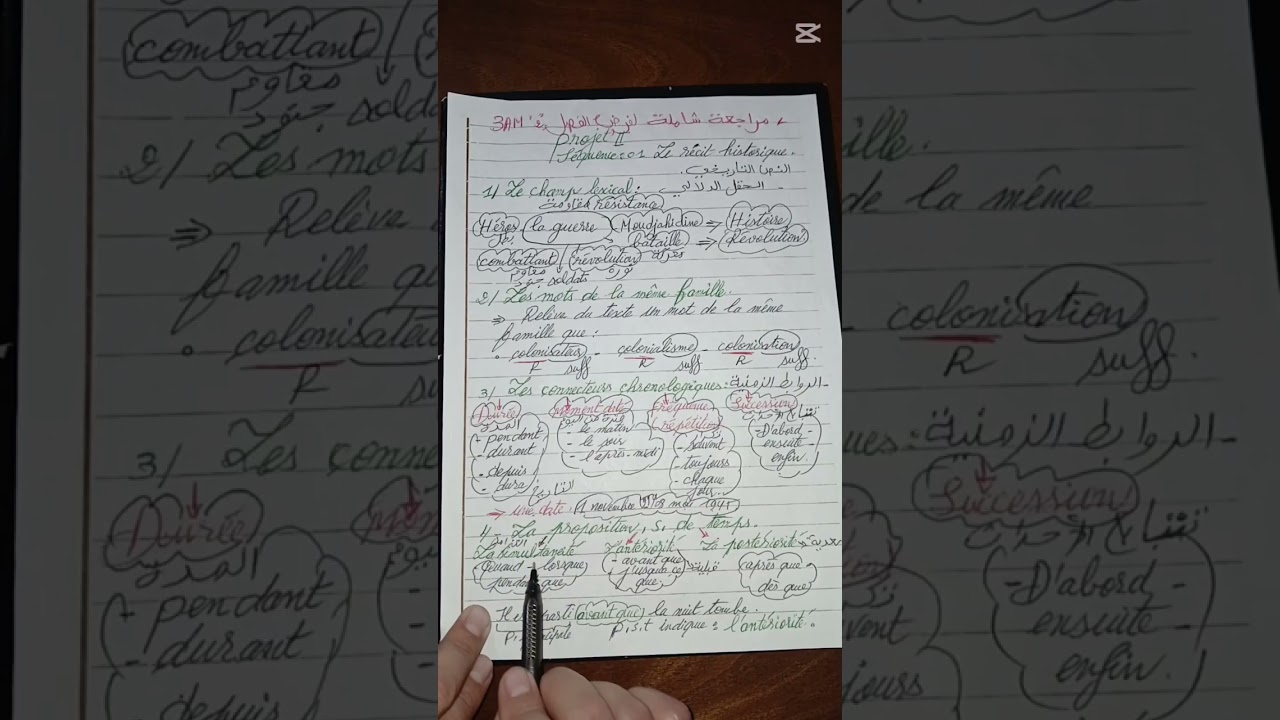 مراجعة شاملة لفرض الفصل 3AM
Projet II
Séquence 01 Le récit historique.
النص التاريخي.
1/ Le champ lexical: الحقل الدلالي
مقاومة résistance
Héros la guerre Moudjahidine ⇒ Histoire
بطل bataille ⇒ Révolution
combattant révolution معركة
مقاوم soldats ثورة
جنود
2/ Les mots de la même famille.
⇒ Relève du texte un mot de la même
famille que:
• colonisateur - colonialisme - colonisation
R suff R suff R suff.
3/ Les connecteurs chronologiques: الروابط الزمنية
Durée Moment daté fréquence Succession
المدة répétition تتابع الأحداث
- pendant - le matin - D'abord -
- durant - le soir - Souvent ensuite -
- depuis - l'après-midi - toujours enfin.
- dura - chaque
jour.
التاريخ
→ une date. 1 novembre 8 mai 1945
4. La proposition. S. de temps.
La simultanéité L'antériorité Le postériorité بعدية
Quand - lorsque - avant que قبلية après que
pendant que jusqu'à ce que dès que
Il est parti avant que la nuit tombe.
P. principale P.s.t indique: l'antériorité.